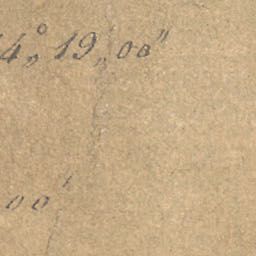 4°, 19, 00"
00'